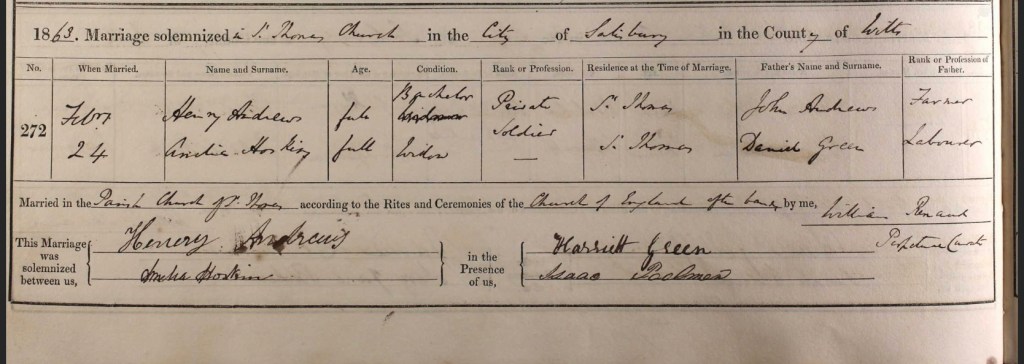 1863. Marriage solemnized in St. Thomas Church in the City of Salisbury in the County of Wilts
No. When Married. Name and Surname. Age. Condition. Rank or Profession. Residence at the Time of Marriage. Father's Name and Surname. Rank or Profession of Father.
272 Febry Henry Andrews full Bachelor Widower Private Soldier St Thomas John Andrews Farmer
24 Amelia Hoskin full Widow — St Thomas Daniel Green Labourer
Married in the Parish Church of St Thomas according to the Rites and Ceremonies of the Church of England after banns by me, William Renaud
Perpetual Curate
This Marriage was solemnized between us, Henery Andrews in the Presence of us, Harriett Green
Amelia Hoskin Isaac